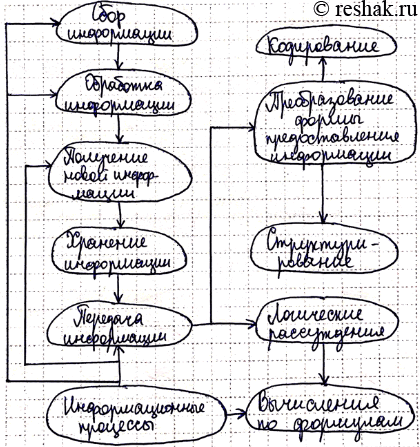 © reshak.ru
Сбор
информации
Обработка
информации
Получение
новой инфор-
мации
Хранение
информации
Передача
информации
Информационные
процессы
Кодирование
Преобразование
формы
предоставления
информации
Структури-
рованое
Логические
рассуждения
Вычисления
по формулам